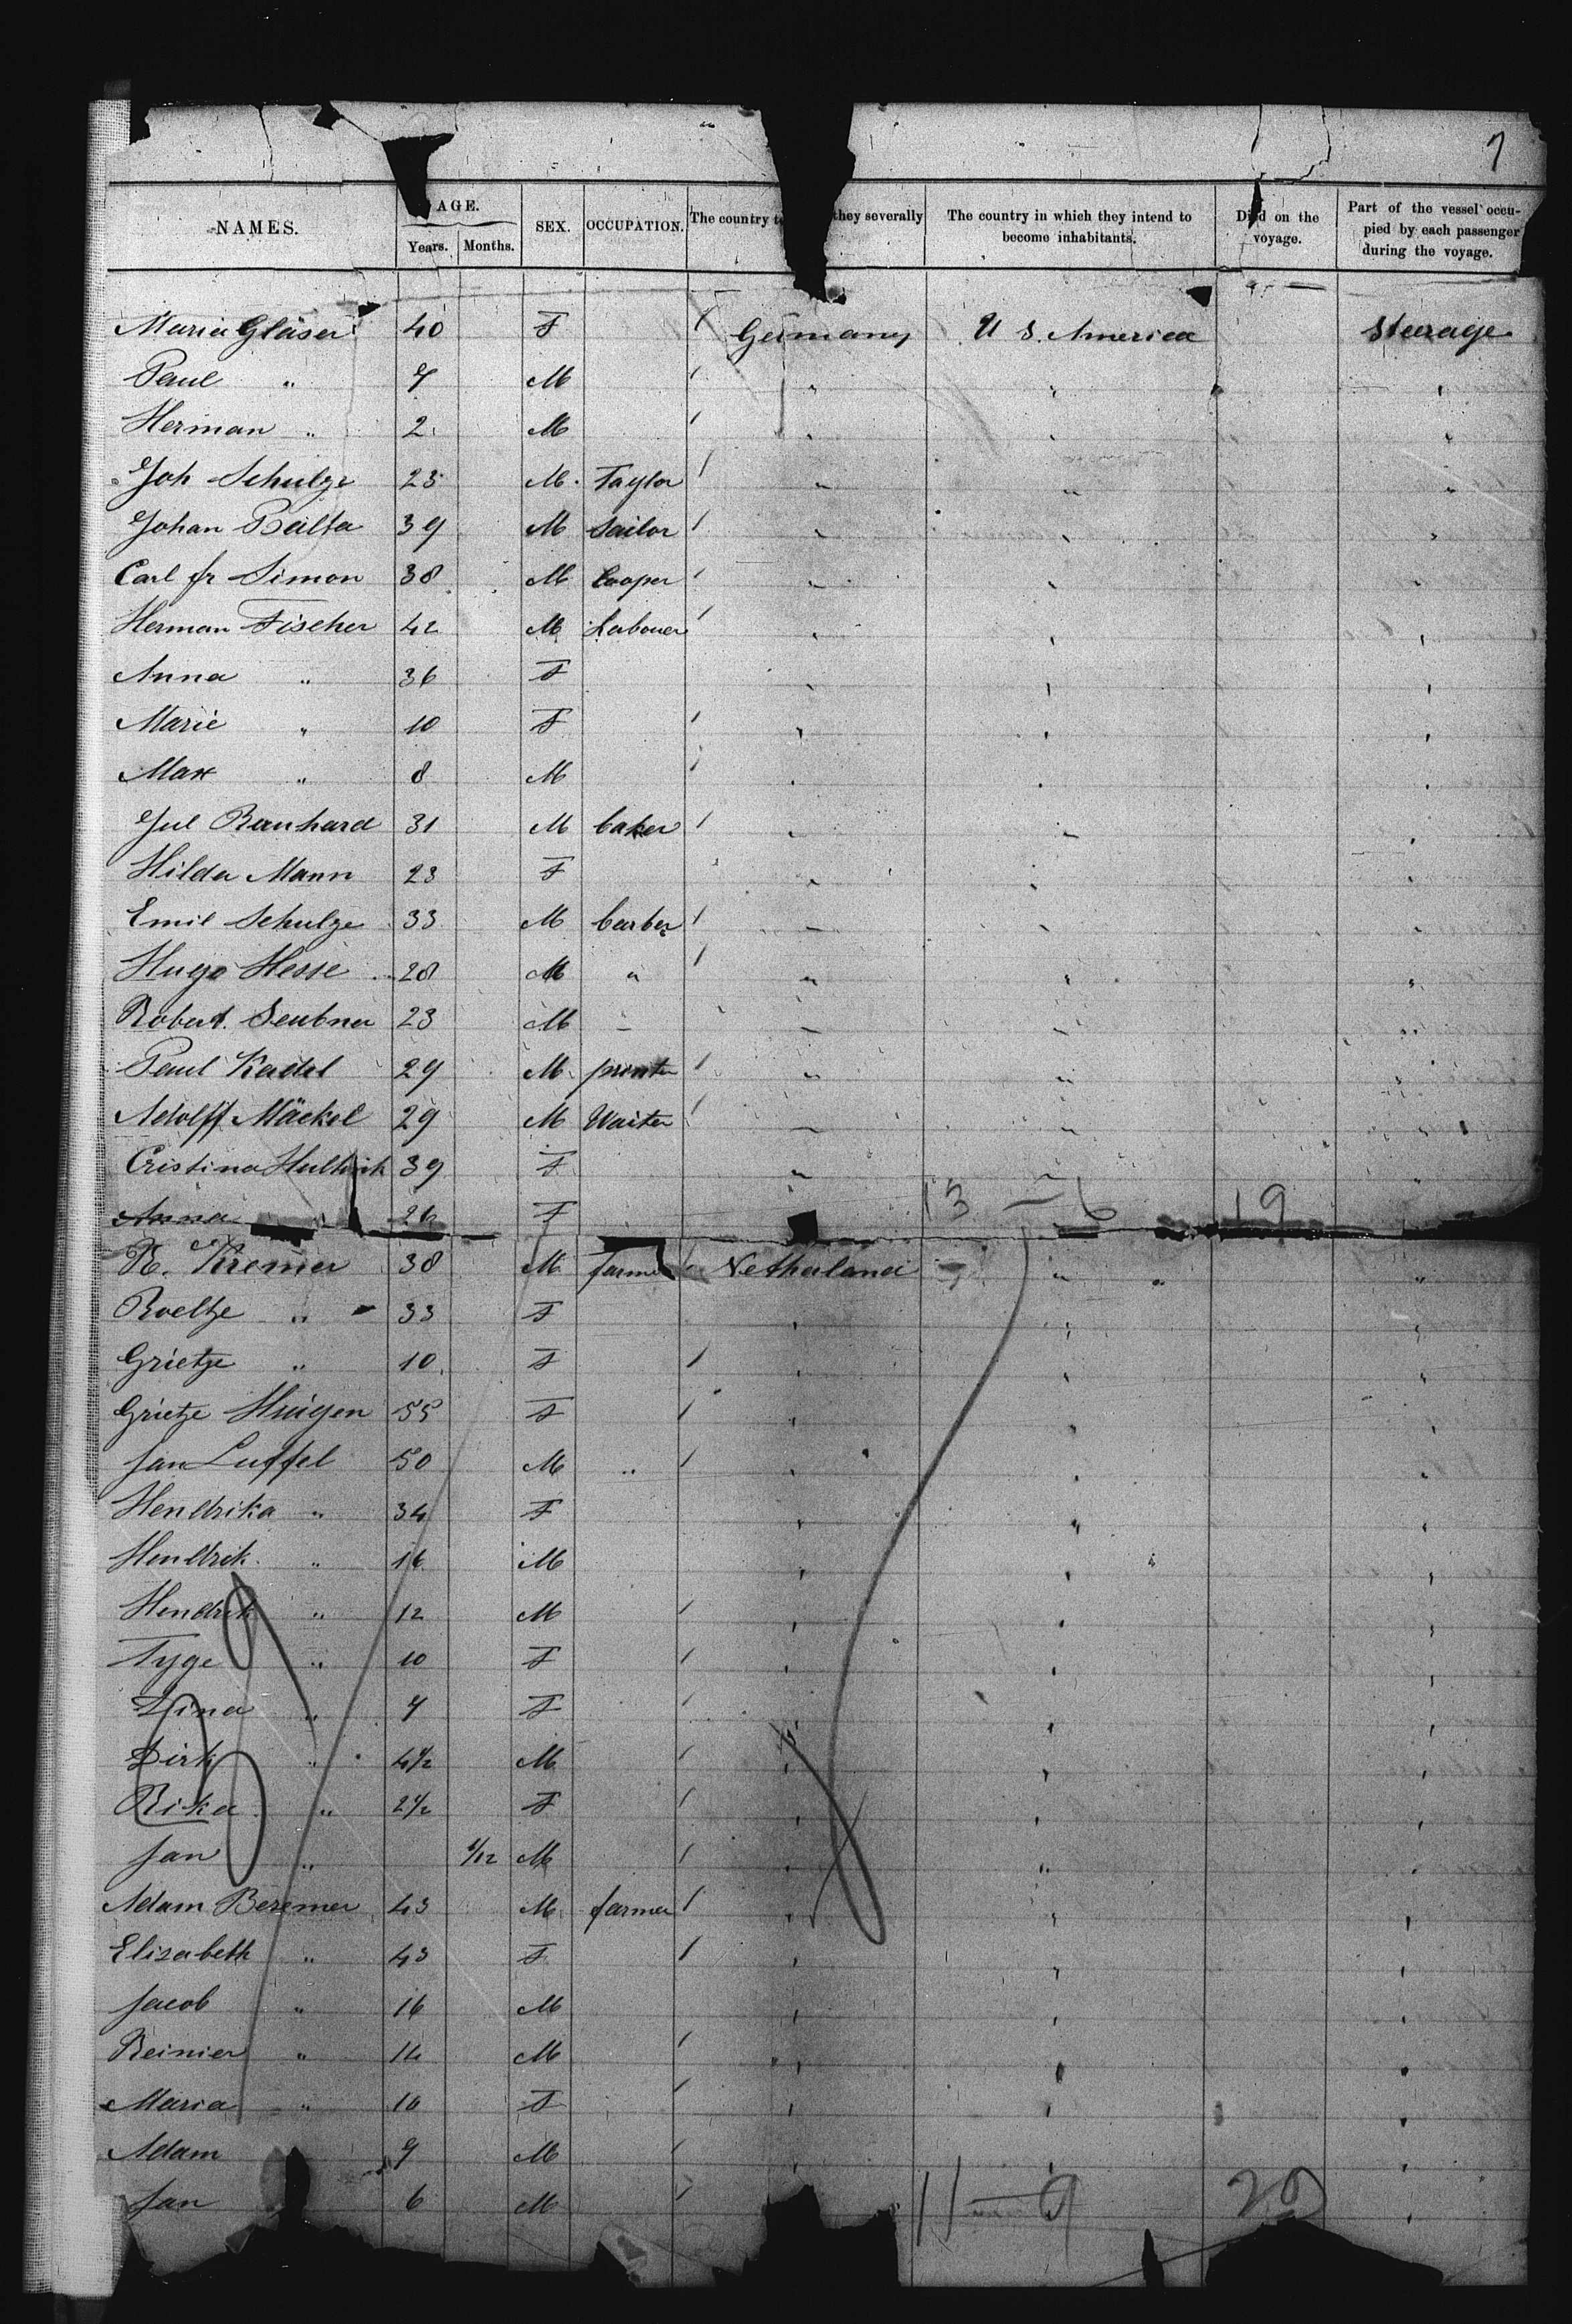 7
NAMES. AGE. Years. Months. SEX. OCCUPATION. The country to they severally The country in which they intend to become inhabitants. Died on the voyage. Part of the vessel occupied by each passenger during the voyage.
Maria Gläser 40 F Germany U S. America Steerage
Paul " 7 M
Herman " 2 M "
Joh Schulze 23 M. Taylor " " "
Johan 39 M Sailor " " "
Carl fr Simon 38 M Cooper " " "
Herman Fischer 42 M Labouer " " "
Anna " 36 F " " "
Marie " 10 F " " "
Max " 8 M " " "
Jul 31 M baker " " "
Hilda Mann 23 F " " "
Emil Schulze 33 M barber " " "
Hugo Hesse 28 M " " " "
Robert. 23 M " " " "
Paul Kadel 29 M printer " " "
Adolff Mäckel 29 M Waiter " " "
Cristina 39 F " " "
Anna 26 F
13 — 6 19
Kremer 38 M farmer Netherland " " "
Roeltje " 33 F " " "
Grietje " 10 F " " "
Grietje Huigen 55 F " " "
Jan Luffel 50 M " " " "
Hendrika " 34 F " " "
Hendrik " 16 M " " "
Hendrik " 12 M " " "
Tyge " 10 F " " "
Dina " 7 F " " "
Dirk " 4½ M " " "
Rika " 2½ F " " "
Jan " M " " "
Adam Bezemer 43 M farmer " " "
Elisabeth " 43 F " " "
Jacob " 16 M " " "
Reinier " 14 M " " "
Maria " 10 F " " "
Adam 9 M " " "
Jan 6 M "
11 — 9 20